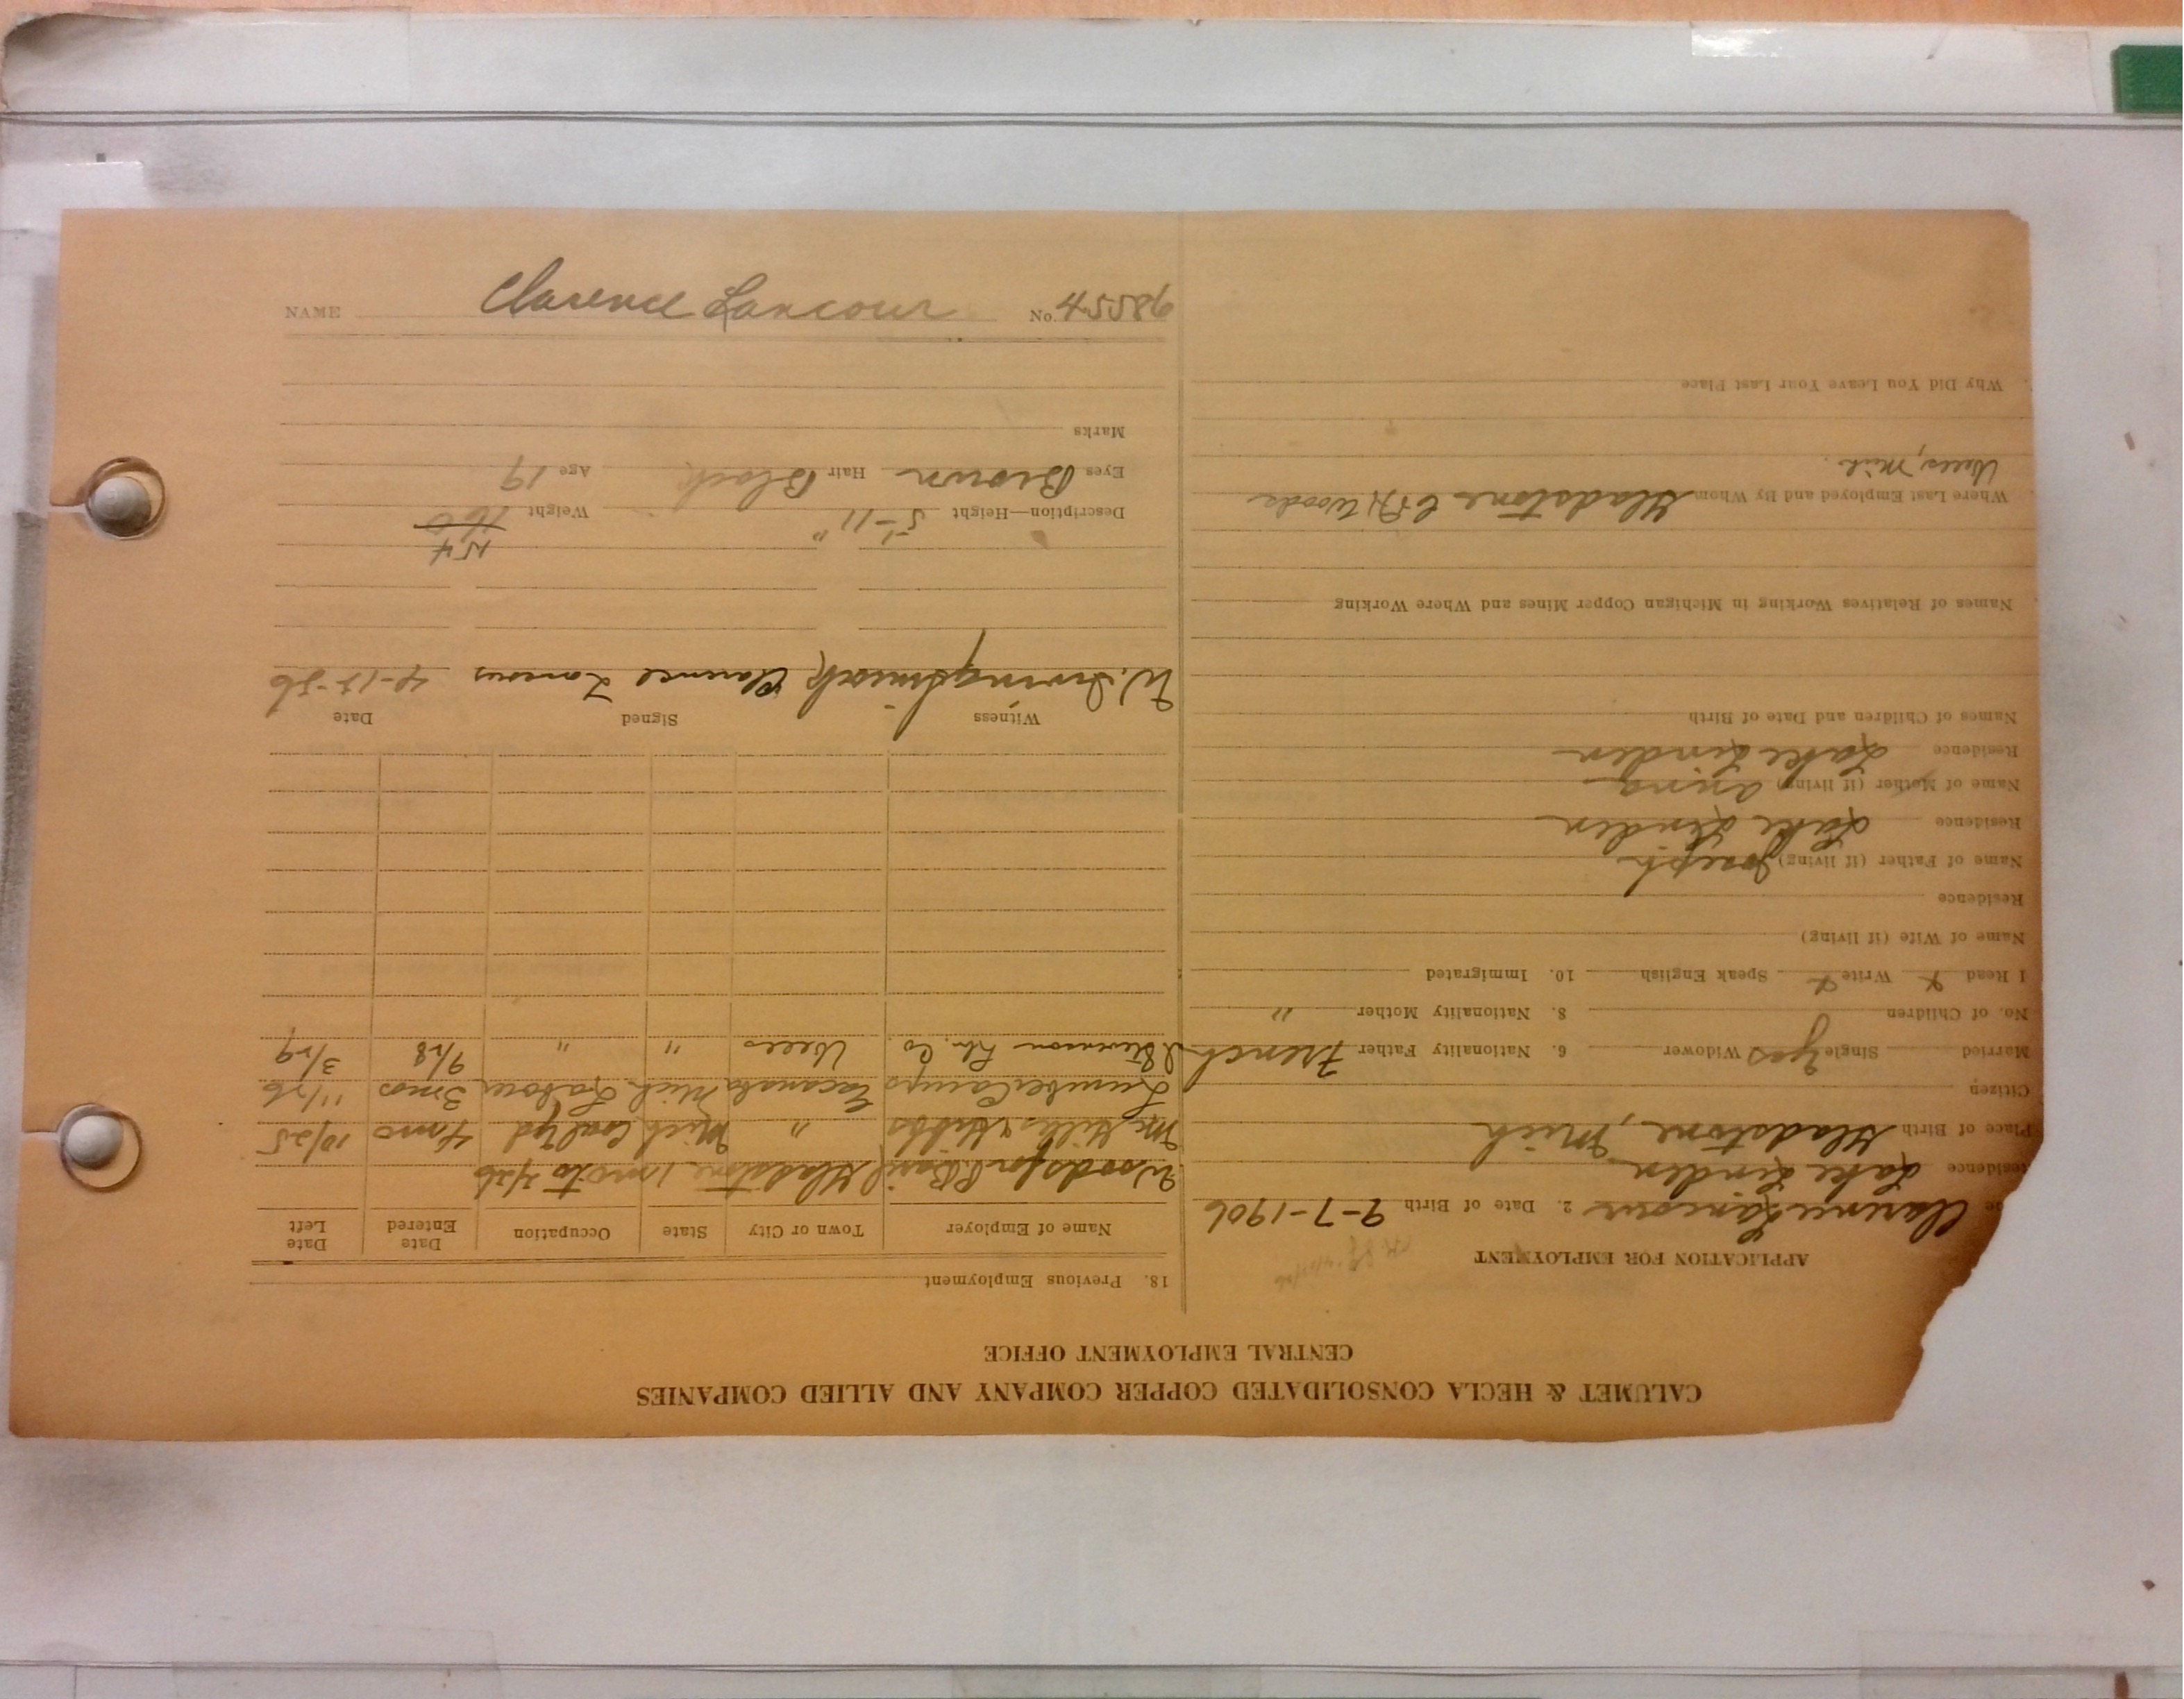 CALUMET & HECLA CONSOLIDATED COPPER COMPANY AND ALLIED COMPANIES
CENTRAL EMPLOYMENT OFFICE
APPLICATION FOR EMPLOYMENT
Clarence Lancour 2. Date of Birth 9-7-1906
Residence Lake Linden
Place of Birth Gladstone, Mich
Citizen
Married Single Yes Widower 6. Nationality Father French
No. of Children 8. Nationality Mother "
I Read x Write x Speak English 10. Immigrated
Name of Wife (if living)
Residence
Name of Father (if living) Joseph
Residence Lake Linden
Name of Mother (if living)
Residence Lake Linden
Names of Children and Date of Birth
Names of Relatives Working in Michigan Copper Mines and Where Working
Where Last Employed and By Whom Gladstone Woods
Wells, Mich.
Why Did You Leave Your Last Place
18. Previous Employment
Name of Employer Town or City State Occupation Date Entered Date Left
Woods for Gladstone 1 mo to 4/26
& Hibbs " Mich Coal Yd 4 mo 10/25
Lumber Camps Escanaba Mich Labour 3 mos 11/26
I. Stevenson Co. Wells " " 9/28 3/29
Witness Signed Date
Clarence Lancour
Description—Height 5'-11" Weight 160
154
Eyes Brown Hair Black Age 19
Marks
NAME Clarence Lancour No. 45586